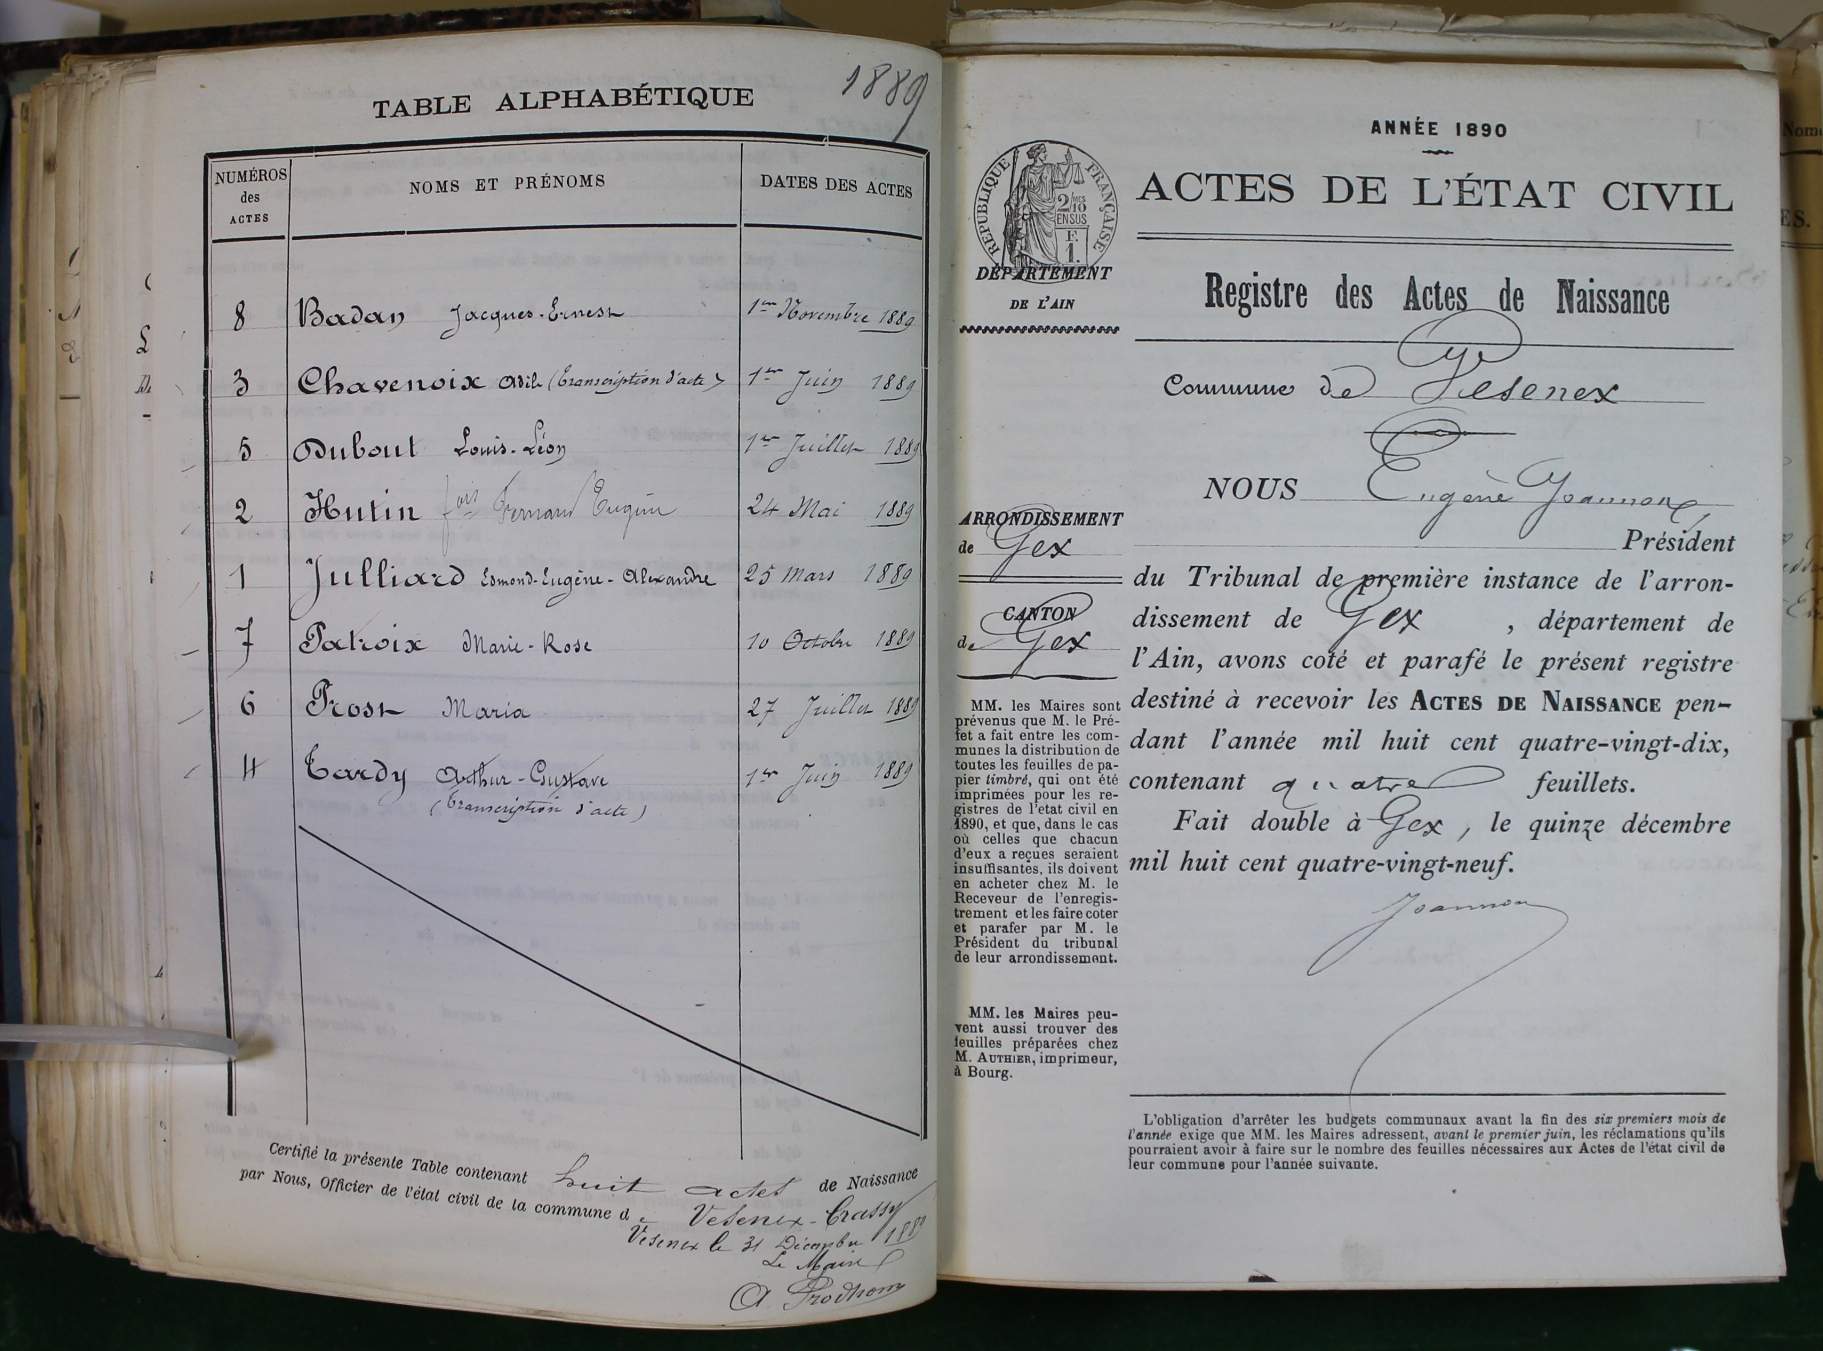 1889
TABLE ALPHABÉTIQUE
NUMÉROS des ACTES NOMS ET PRÉNOMS DATES DES ACTES
8 Badan Jacques-Ernest 1er Novembre 1889
3 Chavenoix (Transcription d'acte) 1er Juin 1889
5 Dubout Louis-Léon 1er Juillet 1889
2 Hutin Fernand Eugène 24 Mai 1889
1 Julliard Edmond-Eugène-Alexandre 25 Mars 1889
7 Patroix Marie-Rose 10 Octobre 1889
6 Prost Maria 27 Juillet 1889
4 Tardy Arthur-Gustave 1er Juin 1889
(Transcription d'acte)
Certifié la présente Table contenant huit actes de Naissance
par Nous, Officier de l'état civil de la commune de Vesenex-Crassy
Vesenex le 31 Décembre 1889
Le Maire
A Prodhom
ANNÉE 1890
ACTES DE L'ÉTAT CIVIL
RÉPUBLIQUE FRANÇAISE
2/10 EN SUS
F.
1.
DÉPARTEMENT
DE L'AIN
Registre des Actes de Naissance
Commune de Vesenex
NOUS Eugène Joannon,
Président
du Tribunal de première instance de l'arron-
dissement de Gex, département de
l'Ain, avons coté et parafé le présent registre
destiné à recevoir les ACTES DE NAISSANCE pen-
dant l'année mil huit cent quatre-vingt-dix,
contenant quatre feuillets.
Fait double à Gex, le quinze décembre
mil huit cent quatre-vingt-neuf.
Joannon
ARRONDISSEMENT
de Gex
CANTON
de Gex
MM. les Maires sont
prévenus que M. le Pré-
fet a fait entre les com-
munes la distribution de
toutes les feuilles de pa-
pier timbré, qui ont été
imprimées pour les re-
gistres de l'état civil en
1890, et que, dans le cas
où celles que chacun
d'eux a reçues seraient
insuffisantes, ils doivent
en acheter chez M. le
Receveur de l'enregis-
trement et les faire coter
et parafer par M. le
Président du tribunal
de leur arrondissement.
MM. les Maires peu-
vent aussi trouver des
feuilles préparées chez
M. AUTHIER, imprimeur,
à Bourg.
L'obligation d'arrêter les budgets communaux avant la fin des six premiers mois de
l'année exige que MM. les Maires adressent, avant le premier juin, les réclamations qu'ils
pourraient avoir à faire sur le nombre des feuilles nécessaires aux Actes de l'état civil de
leur commune pour l'année suivante.